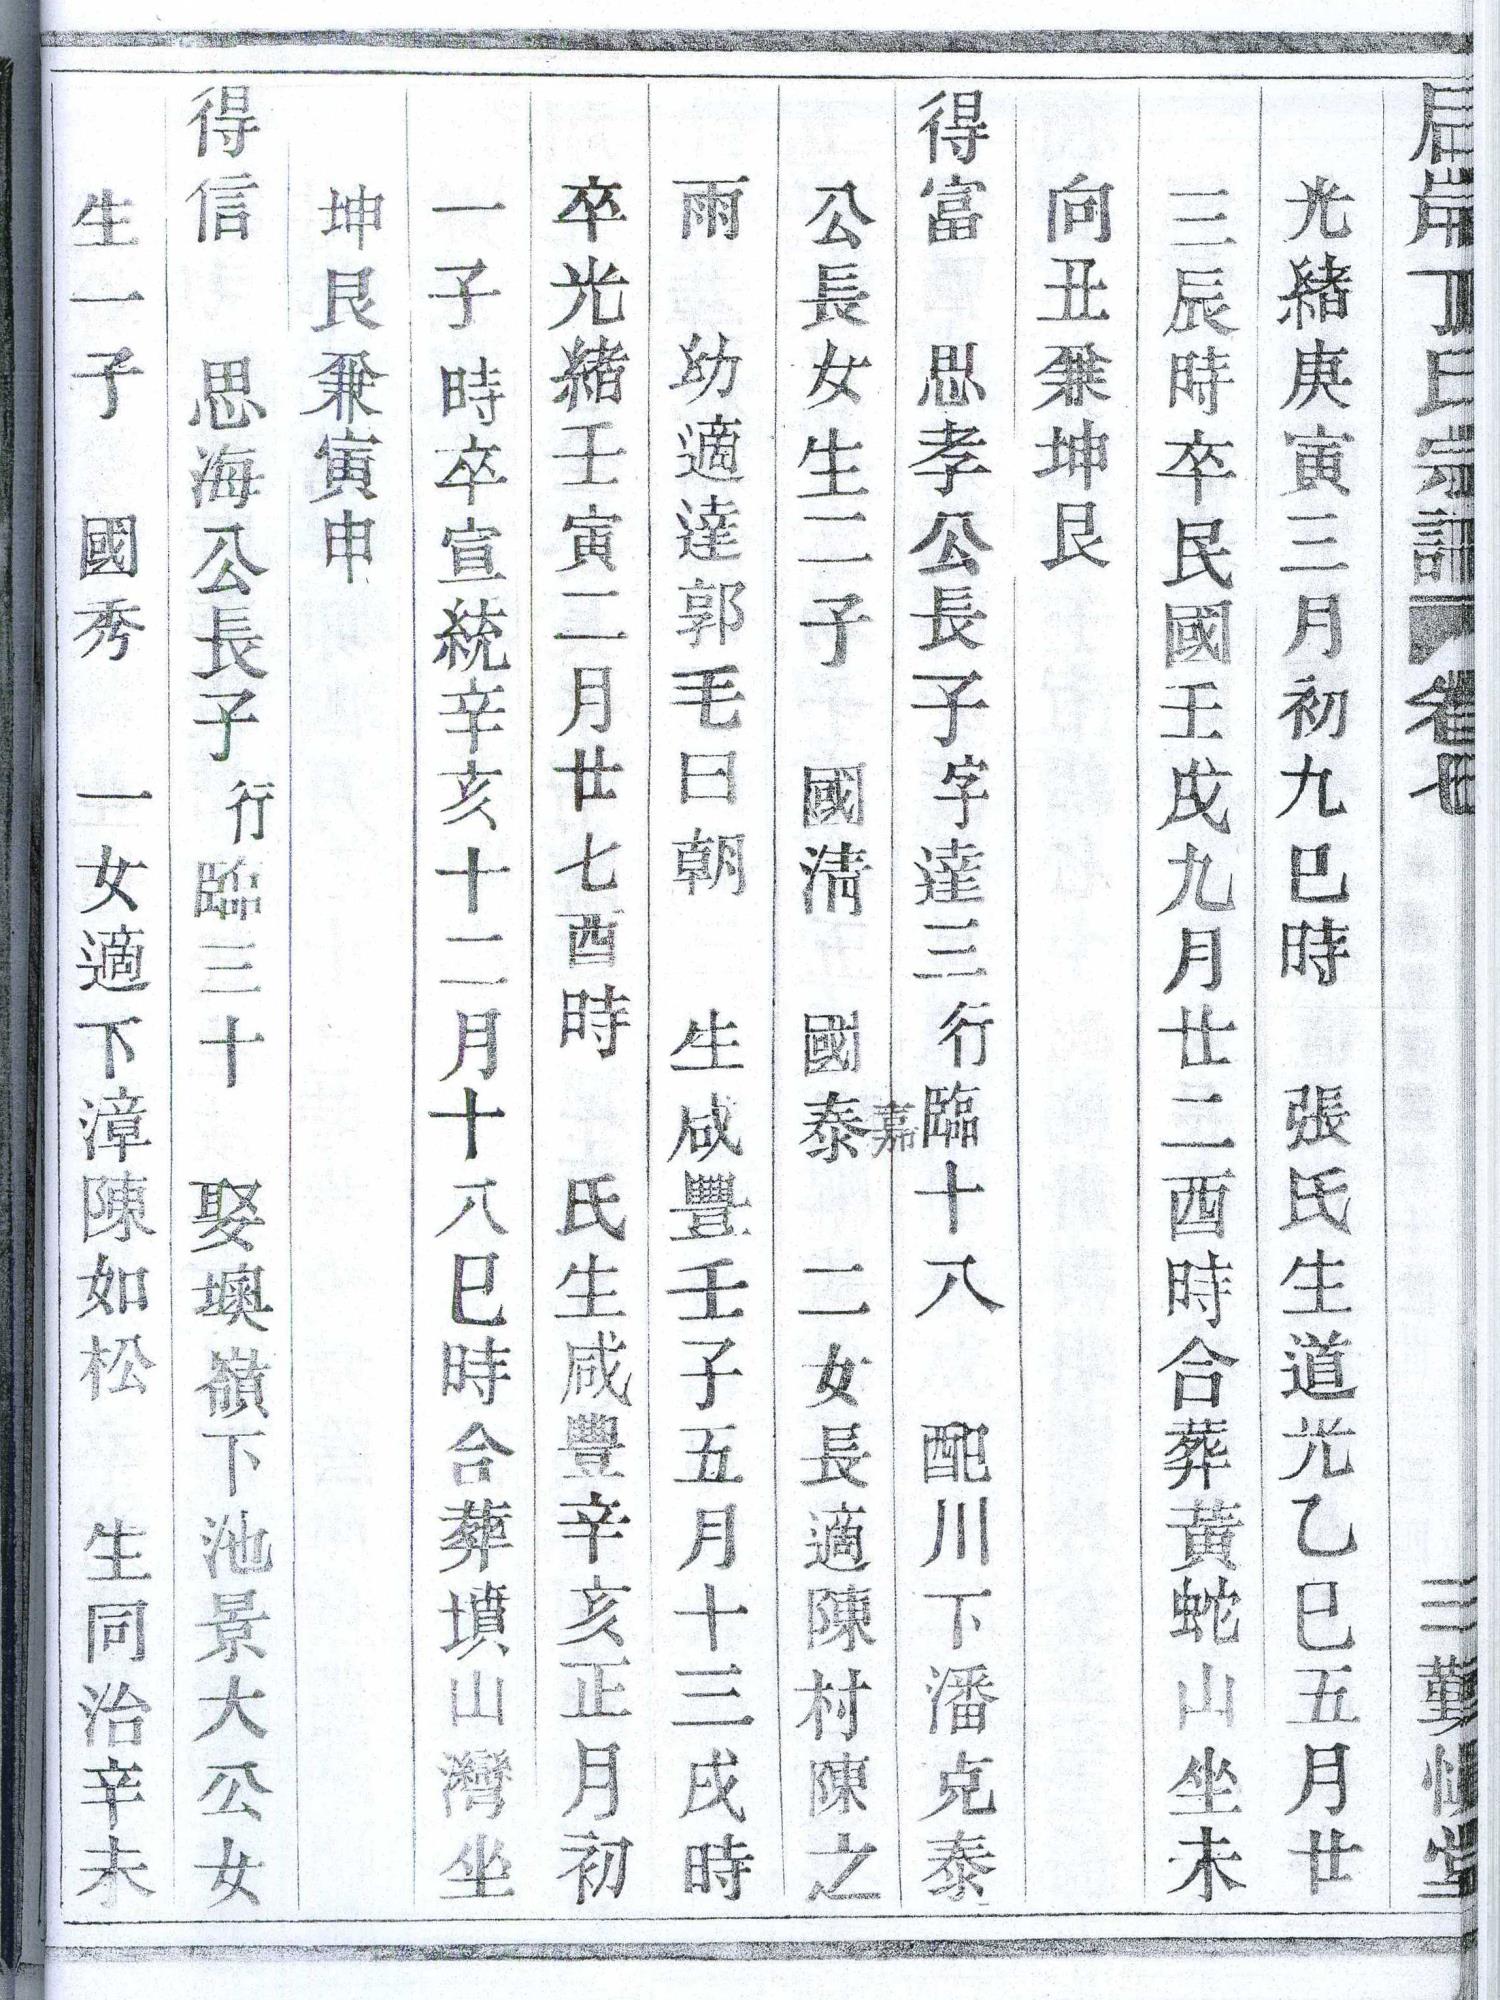 岸丁氏宗譜 卷七 三勤慎堂
光緒庚寅三月初九巳時 張氏生道光乙巳五月廿
三辰時卒民國壬戌九月廿二酉時合葬黃蛇山坐未
向丑兼坤艮
得富 思孝公長子字達三行臨十八 配川下潘克泰
嘉
公長女生二子 國清 國泰 二女長適陳村陳之
雨 幼適達郭毛曰朝 生咸豐壬子五月十三戌時
卒光緒壬寅二月廿七酉時 氏生咸豐辛亥正月初
一子時卒宣統辛亥十二月十八巳時合葬墳山灣坐
坤艮兼寅申
得信 思海公長子行臨三十 娶墺嶺下池景大公女
生一子 國秀 一女適下漳陳如松 生同治辛未